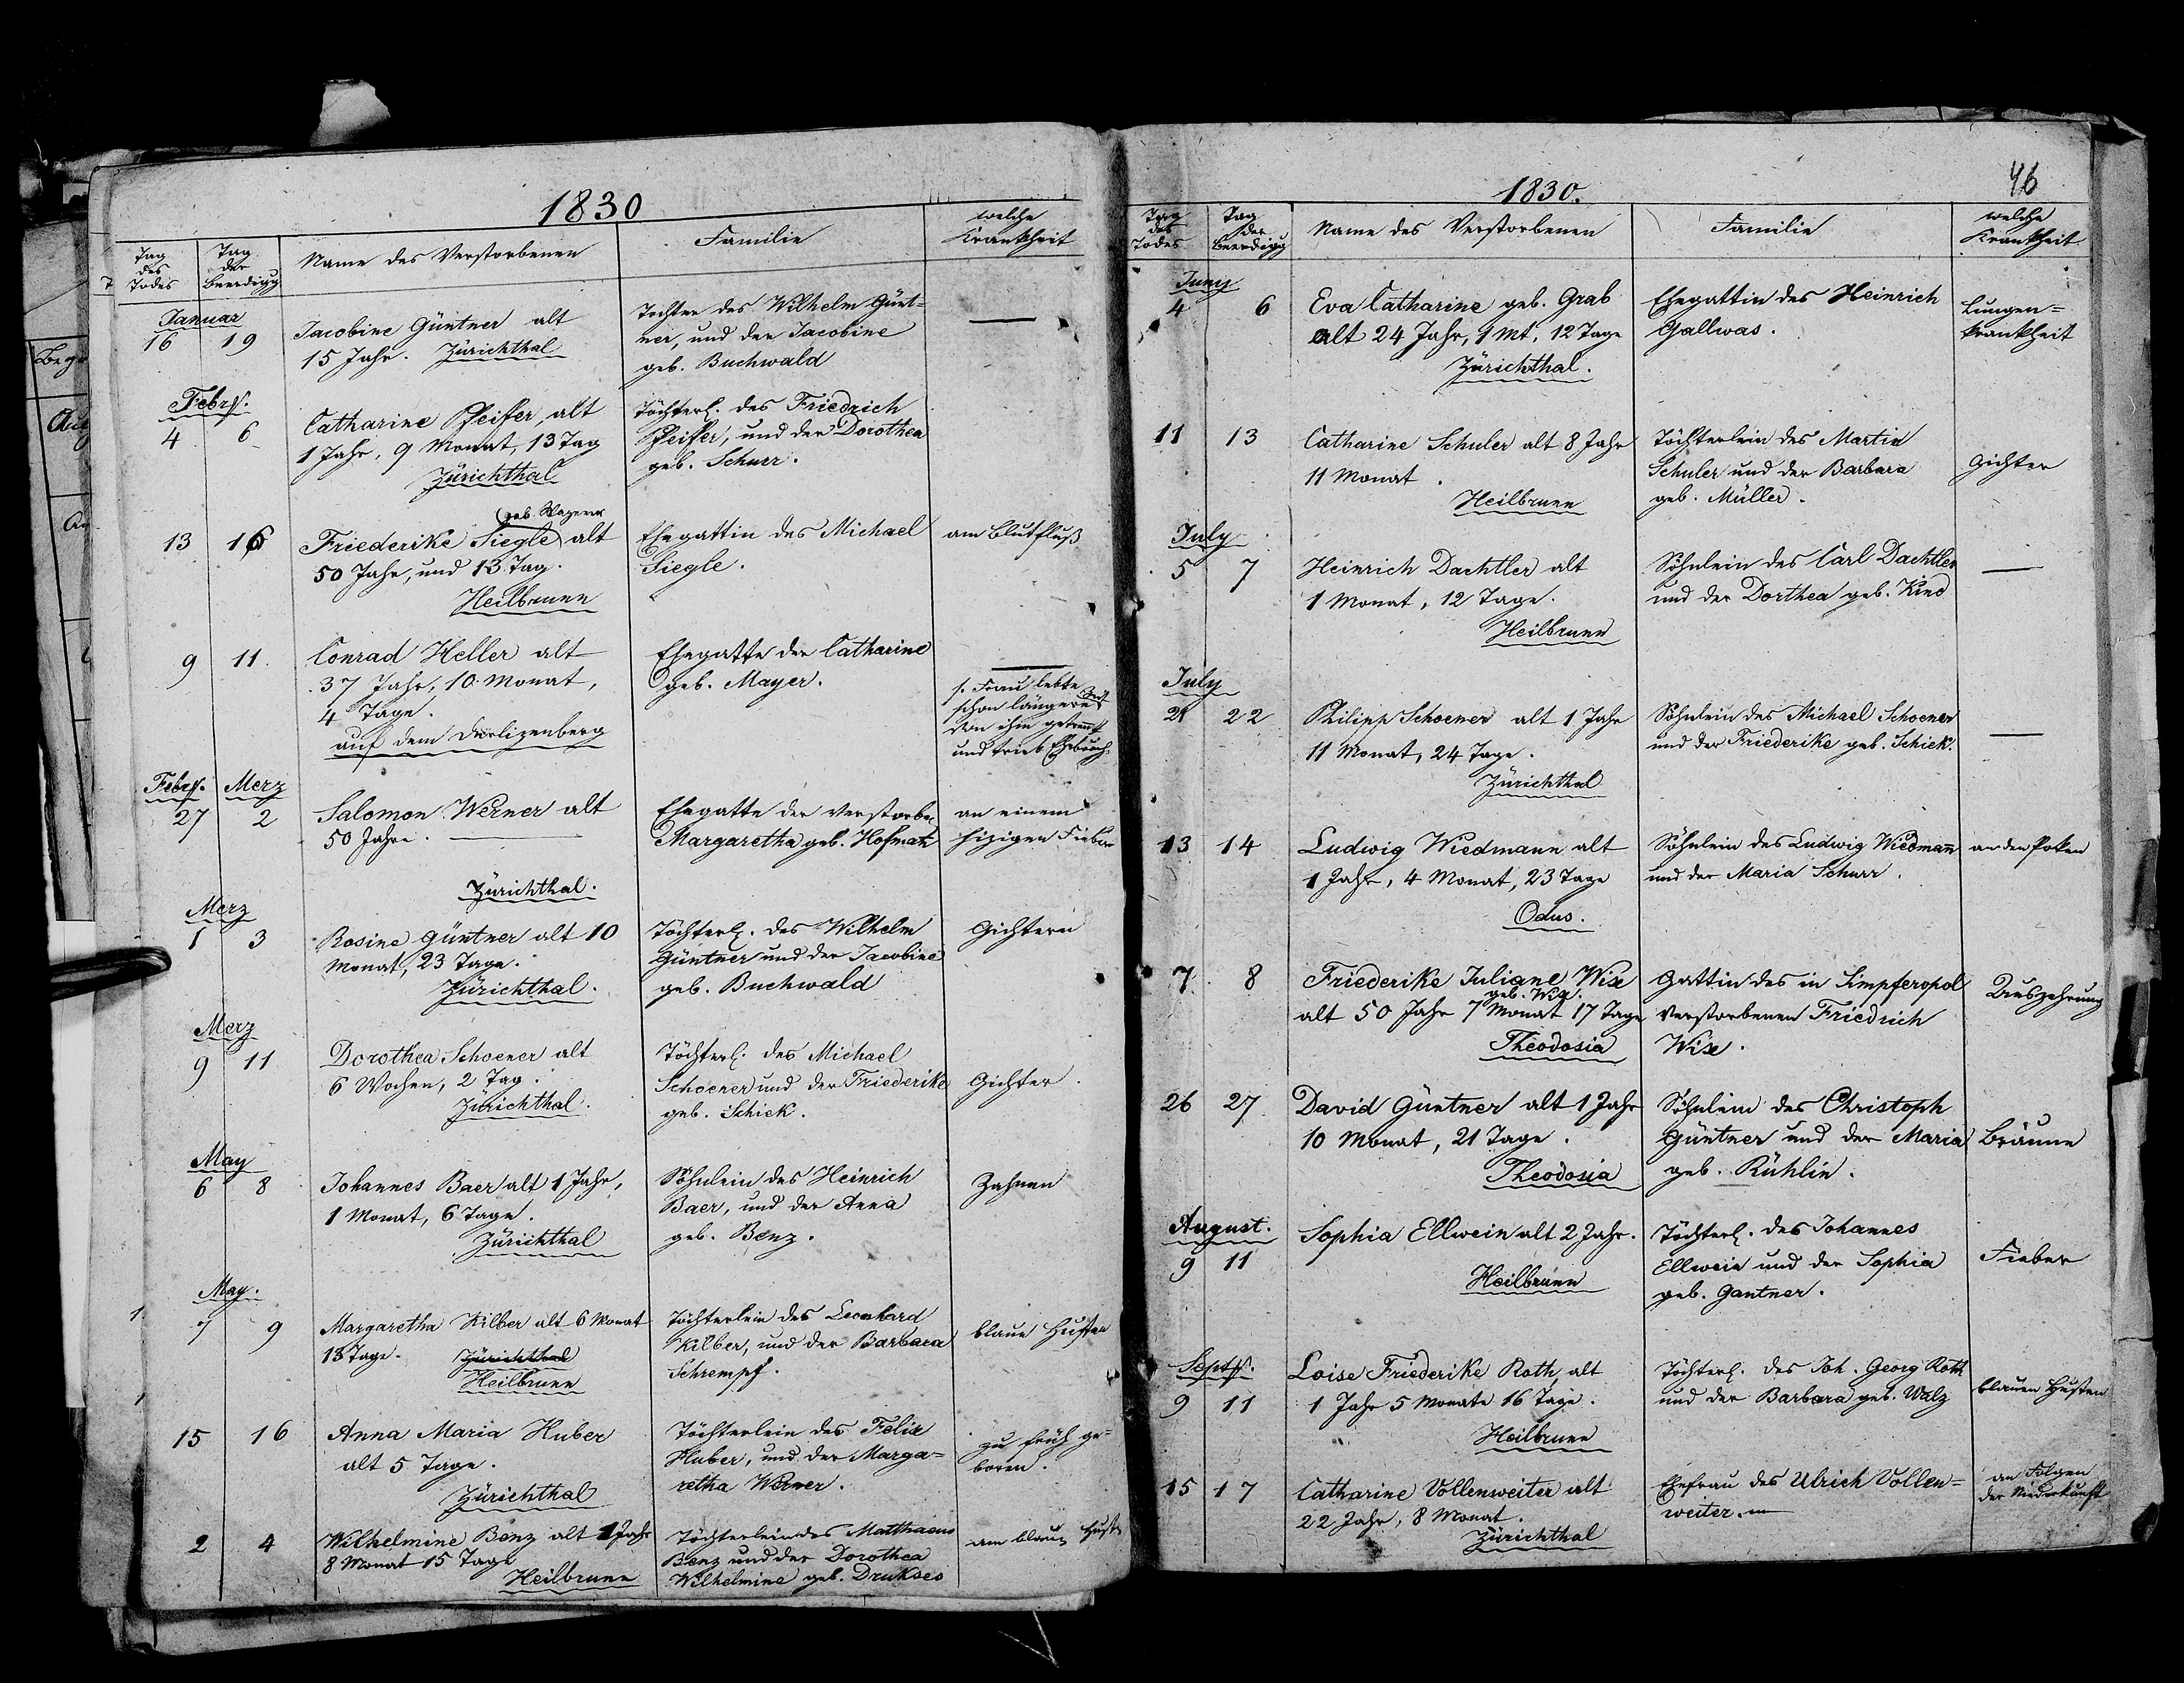 1830
Tag des Todes
Tag der Beerdigg
Name des Verstorbenen
Familie
welche Krankheit
Januar
16 19
Jacobine Güntner alt
15 Jahr. Zürichthal
Tochter des Wilhelm Günt=
ner, und der Jacobine
geb. Buchwald
—
Febr.
4 6
Catharine Pfeifer, alt
1 Jahr, 9 Monat, 13 Tag
Zürichthal
Töchterl. des Friedrich
Pfeiffer, und der Dorothea
geb. Schurr.
13 16
geb. Wagner
Friederike Siegle alt
50 Jahr, und 13 Tag.
Heilbrunn
Ehegattin des Michael
Siegle.
am Blutfluß
9 11.
Conrad Heller alt
37 Jahr, 10 Monat,
4 Tage.
auf dem
Ehegatte der Catharine
geb. Mayer.
—
s. Frau lebte
schon längere Zeit
von ihm getrennt
und trieb Ehebruch
Febr. Merz
27 2
Salomon Werner alt
50 Jahre. —
Zürichthal.
Ehegatte der verstorben
Margaretha geb. Hofmann
an einem
hizigen Fieber
Merz
1 3
Rosine Güntner alt 10
Monat, 23 Tage.
Zürichthal.
Töchterl. des Wilhelm
Güntner und der Jacobine
geb. Buchwald
Gichtern
Merz
9 11
Dorothea Schoener alt
6 Wochen, 2 Tag.
Zürichthal.
Töchterl. des Michael
Schoener und der Friederike
geb. Schick.
Gichter.
May
6 8
Johannes Baer alt 1 Jahr,
1 Monat, 6 Tage.
Zürichthal
Söhnlein des Heinrich
Baer, und der Anna
geb. Benz.
Zahnen
May.
7 9
Margaretha Kilber alt 6 Monat
13 Tage. Zürichthal
Heilbrunn
Töchterlein des Leonhard
Kilber, und der Barbara
Schrempf.
blaue Husten
15 16
Anna Maria Huber
alt 5 Tage.
Zürichthal
Töchterlein des Felix
Huber, und der Marga=
retha Werner.
zu früh ge=
boren.
2 4
Wilhelmine Benz alt 1 Jahr
8 Monat 15 Tage
Heilbrunn
Töchterlein des Matthaeus
Benz und der Dorothea
Wilhelmine geb.
am blaun Hust
46
1830.
Tag des Todes
Tag der Beerdigg
Name des Verstorbenen
Familie
welche Krankheit
Juny
4 6
Eva Catharine geb. Grab
alt 24 Jahr, 1 Mt. 12 Tage
Zürichthal.
Ehegattin des Heinrich
Gallwas.
Lungen=
krankheit
11 13
Catharine Schuler alt 8 Jahr
11 Monat.
Heilbrunn
Töchterlein des Martin
Schuler und der Barbara
geb. Müller.
Gichter
July
5 7
Heinrich Dachtler alt
1 Monat, 12 Tage.
Heilbrunn
Söhnlein des Carl Dachtler
und der Dorthea geb. Kind
—
July
21 22
Philipp Schoener alt 1 Jahr
11 Monat, 24 Tage.
Zürichthal
Söhnlein des Michael Schoener
und der Friederike geb. Schiek.
—
13 14
Ludwig Wiedmann alt
1 Jahr, 4 Monat, 23 Tage
Odus.
Söhnlein des Ludwig Wiedmann
und der Maria Schurr.
an den Poken
7 8
Friederike Juliane Wix
geb. Wix.
alt 50 Jahr 7 Monat 17 Tage
Theodosia
Gattin des in Simpferopol
verstorbenen Friedrich
Wix.
Auszehrung
26 27
David Güntner alt 1 Jahr
10 Monat, 21 Tage.
Theodosia
Söhnlein des Christoph
Güntner und der Maria
geb. Rühlin.
Bräune
August.
9 11
Sophia Ellwein alt 2 Jahr.
Heilbrunn
Töchterl. des Johannes
Ellwein und der Sophia
geb. Gantner.
Fieber
Sept.
9 11
Loise Friederike Roth, alt
1 Jahr 5 Monate 16 Tage.
Heilbrunn
Töchterl. des Joh. Georg Roth
und der Barbara geb. Walz
blauen Husten
15 17
Catharine Vollenweiter alt
22 Jahr, 8 Monat.
Zürichthal
Ehefrau des Ulrich Vollen=
weiter.
an Folgen
der Niederkunft